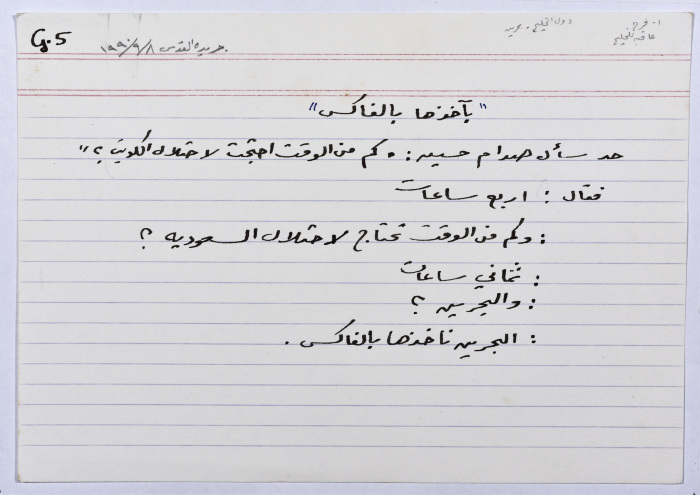 G.5
جريدة القدس ١٩٩٠/٩/٨
دول الخليج.
"بآخذها بالفاكس"
حد سأل صدام حسين: "كم من الوقت احتجت لاحتلال الكويت؟"
فقال: اربع ساعات
: وكم من الوقت تحتاج لاحتلال السعوديه؟
: ثماني ساعات
: والبحرين؟
: البحرين ناخذها بالفاكس.